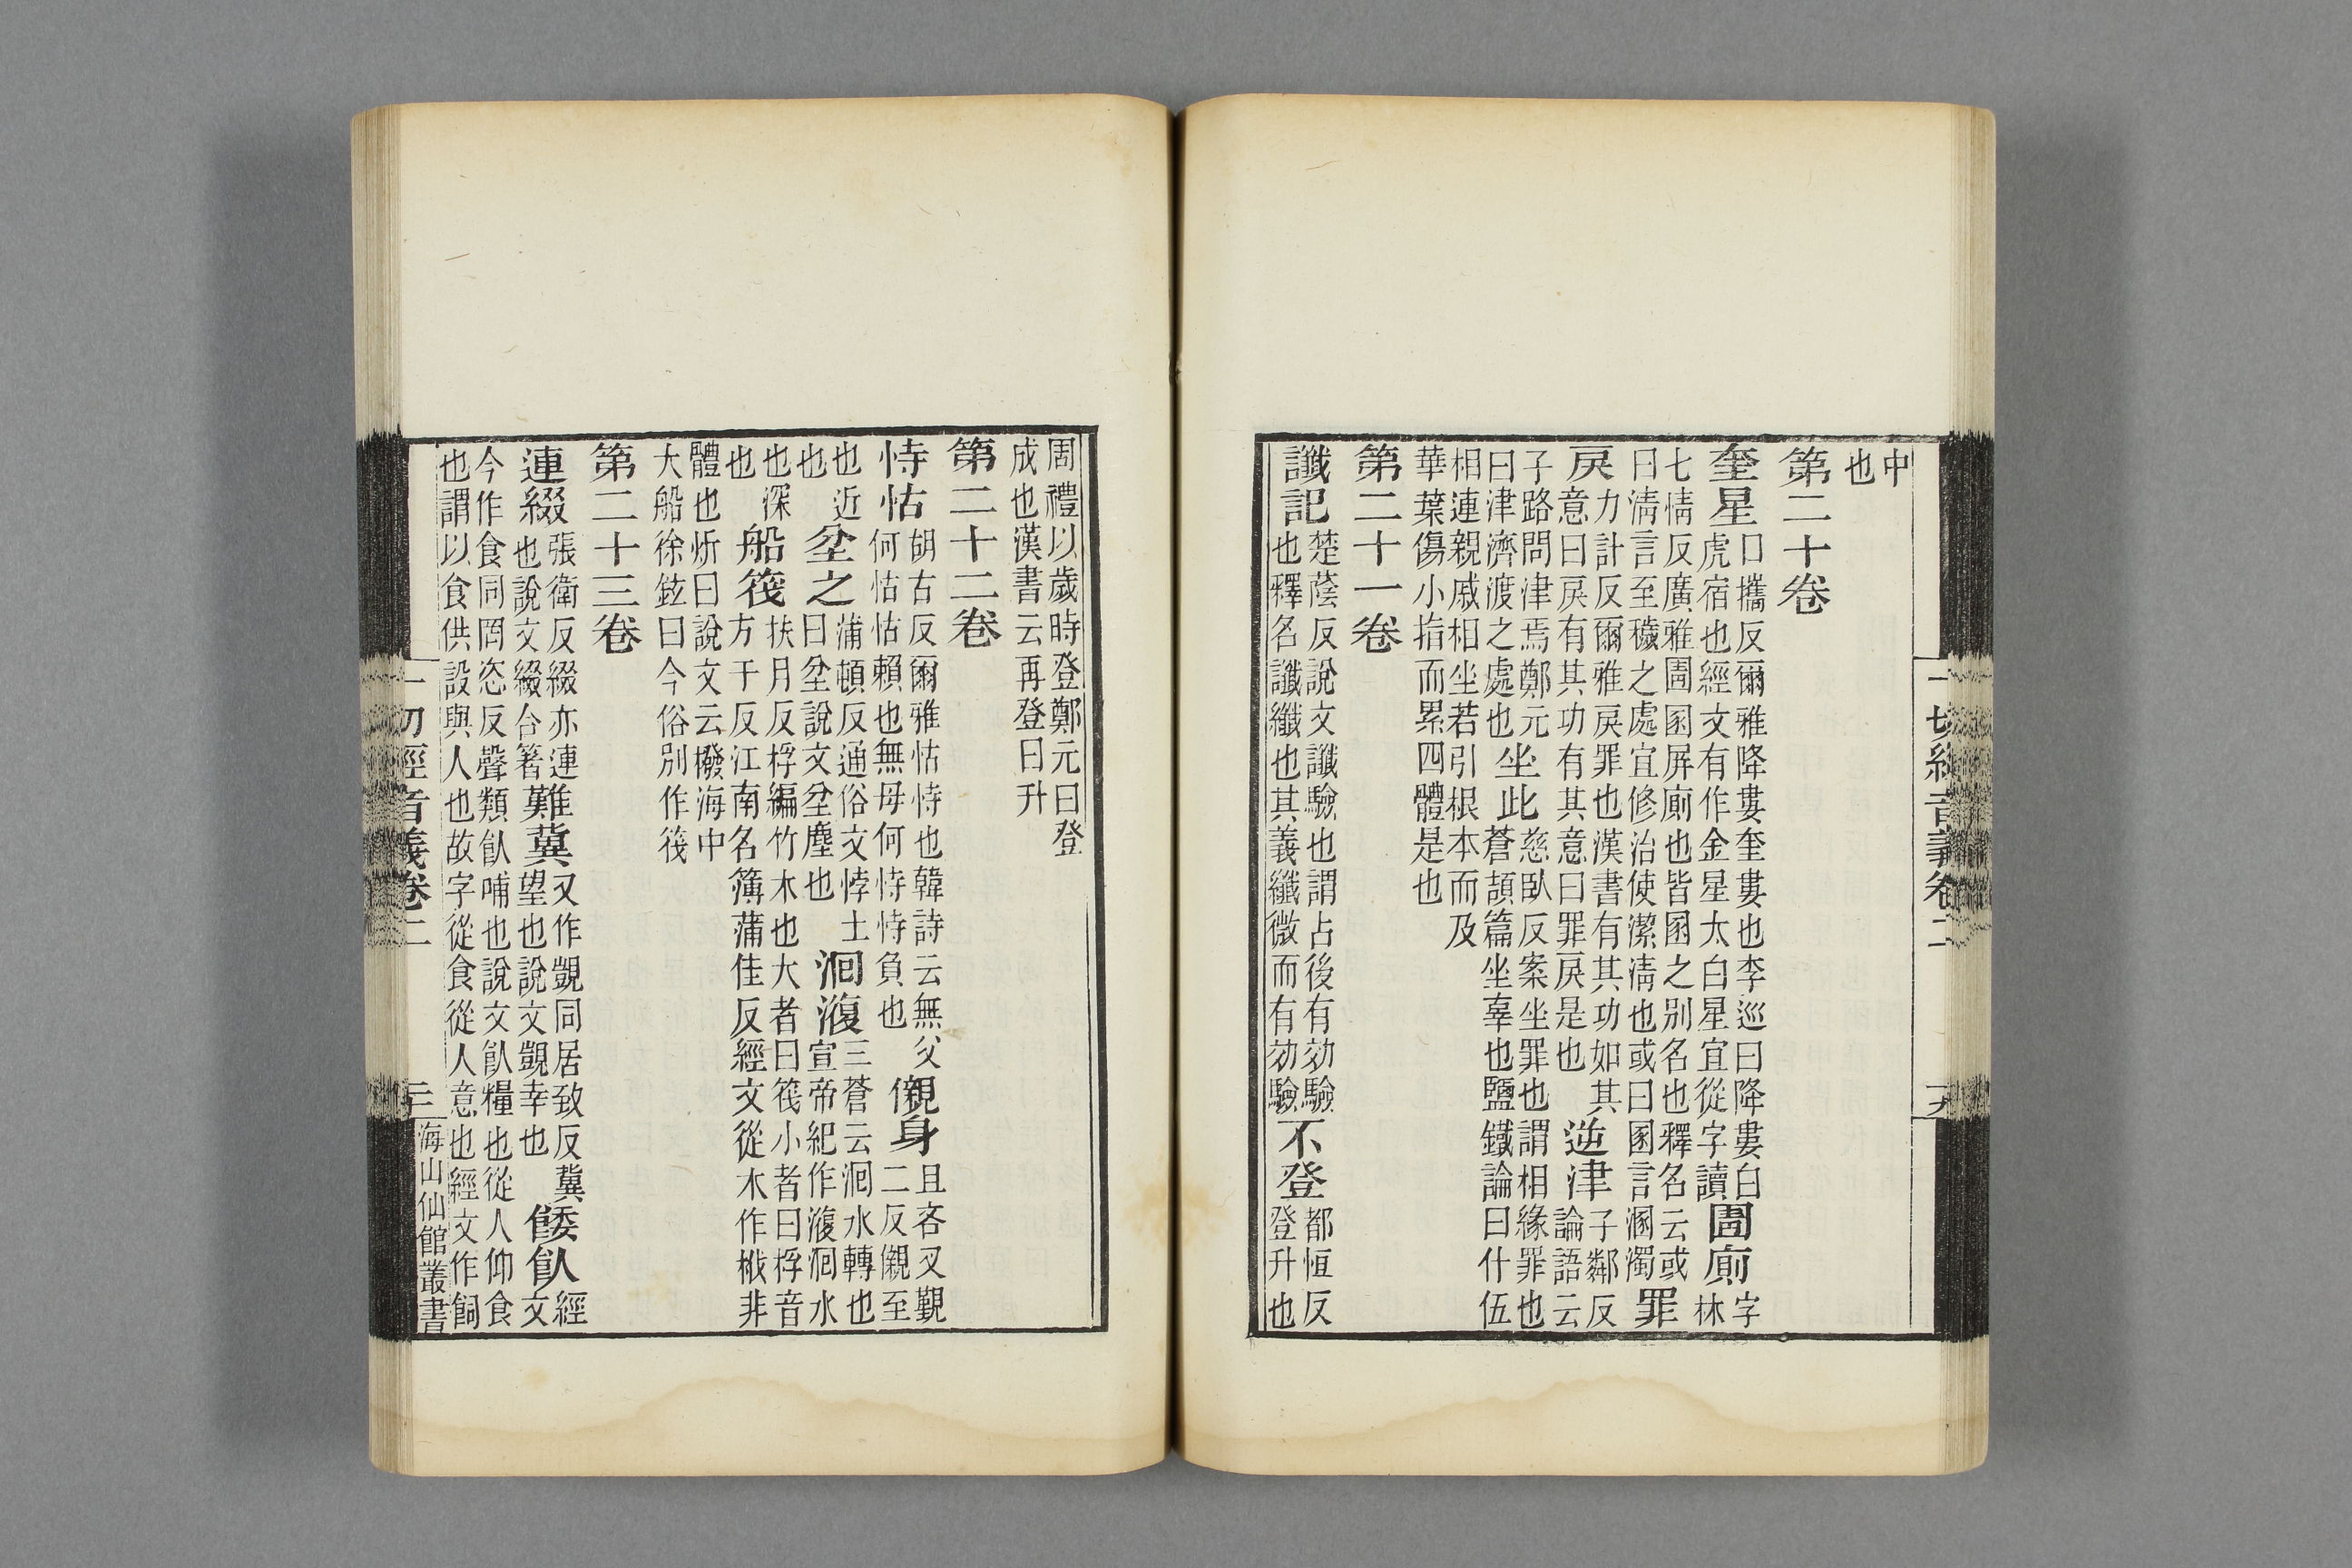 中
也
第二十卷
奎星
口攜反爾雅降婁奎婁也李巡曰降婁白
虎宿也經文有作金星太白星宜從字讀
圊廁
字
林
七情反廣雅圊圂屏廁也皆圂之別名也釋名云或
曰淸言至穢之處宜修治使潔淸也或曰圂言溷濁
罪
戾
力計反爾雅戾罪也漢書有其功如其
意曰戾有其功有其意曰罪戾是也
逆津
子鄰反
論語云
子路問津焉鄭元
曰津濟渡之處也
坐此
慈臥反案坐罪也謂相緣罪也
蒼頡篇坐辜也鹽鐵論曰什伍
相連親戚相坐若引根本而及
華葉傷小指而累四體是也
第二十一卷
讖記
楚蔭反說文讖驗也謂占後有効驗
也釋名讖纖也其義纖微而有効驗
不登
都恒反
登升也
一切經音義卷二
周禮以歲時登鄭元曰登
成也漢書云再登曰升
第二十二卷
恃怙
胡古反爾雅怙恃也韓詩云無父
何怙怙賴也無母何恃恃負也
儭身
且吝叉覲
二反儭至
也近
也
坌之
蒲頓反通俗文悖土
曰坌說文坌塵也
洄澓
三蒼云洄水轉也
宣帝紀作澓洄水
也深
也
船筏
扶月反桴編竹木也大者曰筏小者曰桴音
方于反江南名簿蒲佳反經文從木作栰非
體也炘曰說文云橃海中
大船徐鉉曰今俗別作筏
第二十三卷
連綴
張衛反綴亦連
也說文綴合著
難冀
又作覬同居致反冀
望也說文覬幸也
餧飤
經
文
今作食同罔恣反聲類飤哺也說文飤糧也從人仰食
也謂以食供設與人也故字從食從人意也經文作飼
一切經音義卷二
三
海山仙館叢書